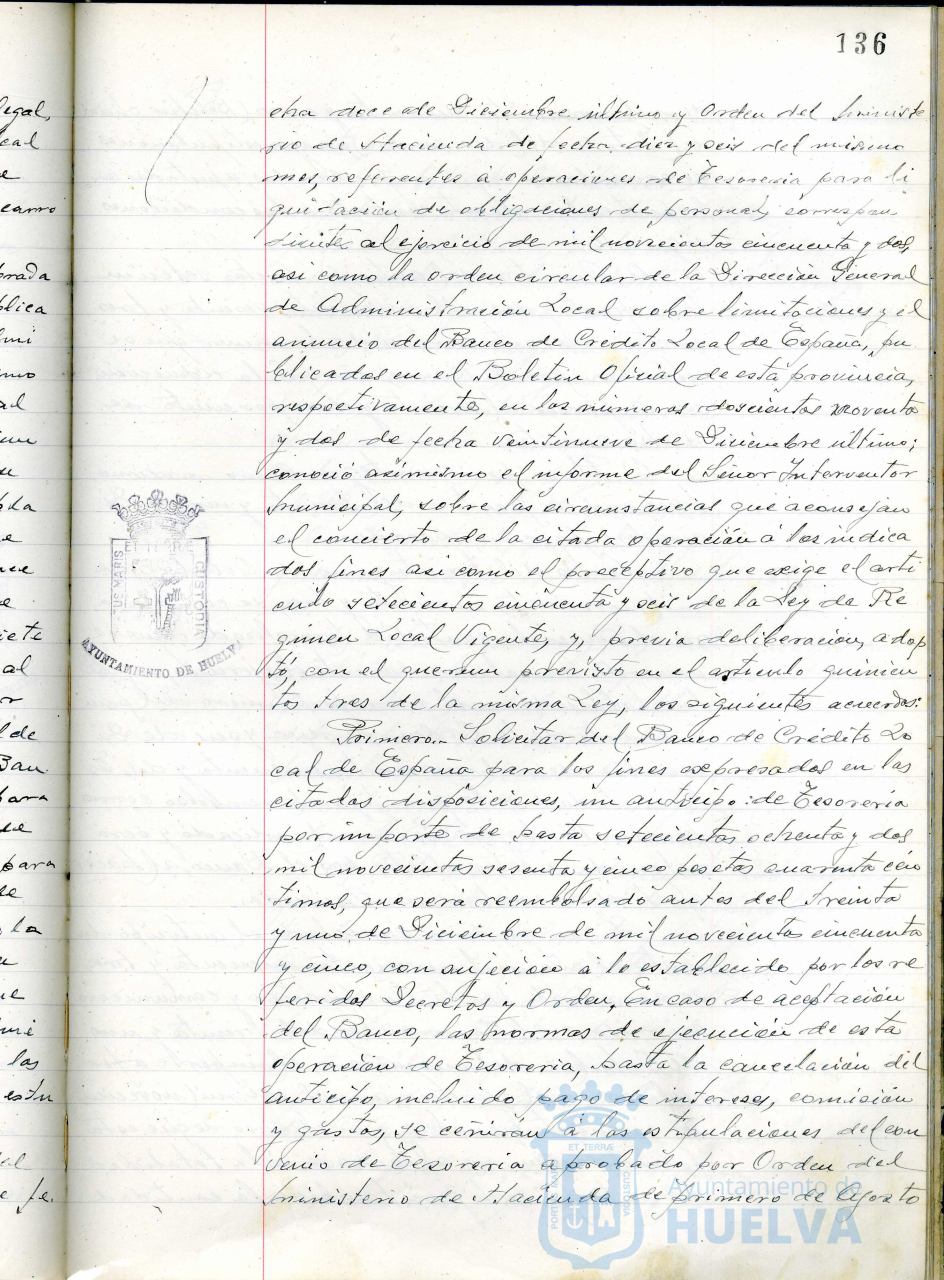 136
cha doce de Diciembre último y Orden del Ministe
rio de Hacienda de fecha diez y seis del mismo
mes, referentes á operaciones de Tesoreria para li
quidación de obligaciones de personal, correspon
dientes al ejercicio de mil novecientos cincuenta y dos,
asi como la orden circular de la Dirección General
de Administración Local sobre limitaciones y el
anuncio del Banco de Crédito Local de España, pu
blicados en el Boletin Oficial de esta provincia,
respectivamente, en los números doscientos noventa
y dos de fecha veintinueve de Diciembre último;
conoció asimismo el informe del Señor Interventor
Municipal, sobre las circunstancias que aconsejan
el concierto de la citada operación á los indica
dos fines asi como el preceptivo que exige el arti
culo setecientos cincuenta y seis de la Ley de Re
gimen Local Vigente, y, previa deliberación, adop
tó, con el quorum previsto en el articulo quinien
tos tres de la misma Ley, los siguientes acuerdos:
Primero.- Solicitar del Banco de Crédito Lo
cal de España para los fines expresados en las
citadas disposiciones, un anticipo de Tesoreria
por importe de hasta setecientas ochenta y dos
mil novecientas sesenta y cinco pesetas cuarenta cén
timos, que será reembolsado antes del treinta
y uno de Diciembre de mil novecientos cincuenta
y cinco, con sujeción á lo establecido por los re
feridos Decretos y Orden. En caso de aceptación
del Banco, las normas de ejecución de esta
operación de Tesoreria, hasta la cancelación del
anticipo, incluido pago de intereses, comisión
y gastos, se ceñirán á las estipulaciones del con
venio de Tesoreria aprobado por Orden del
Ministerio de Hacienda de primero de Agosto
AYUNTAMIENTO DE HUELVA
Ayuntamiento de
HUELVA